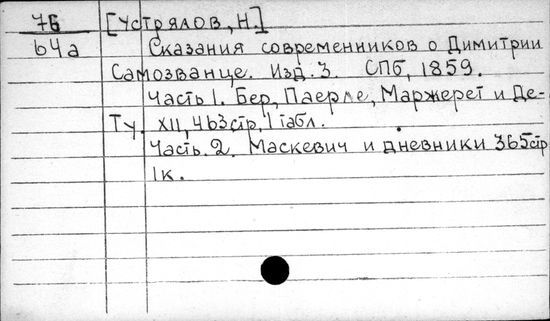 7Б [Устрялов, Н.]
64а Сказания современников о Димитрии
Самозванце. Изд. 3. СПб, 1859.
Часть 1. Бер, Паерле, Маржерет и Де-
Ту. XII, 463 стр, 1 табл.
Часть. 2. Маскевич и дневники 365 стр
1 к.